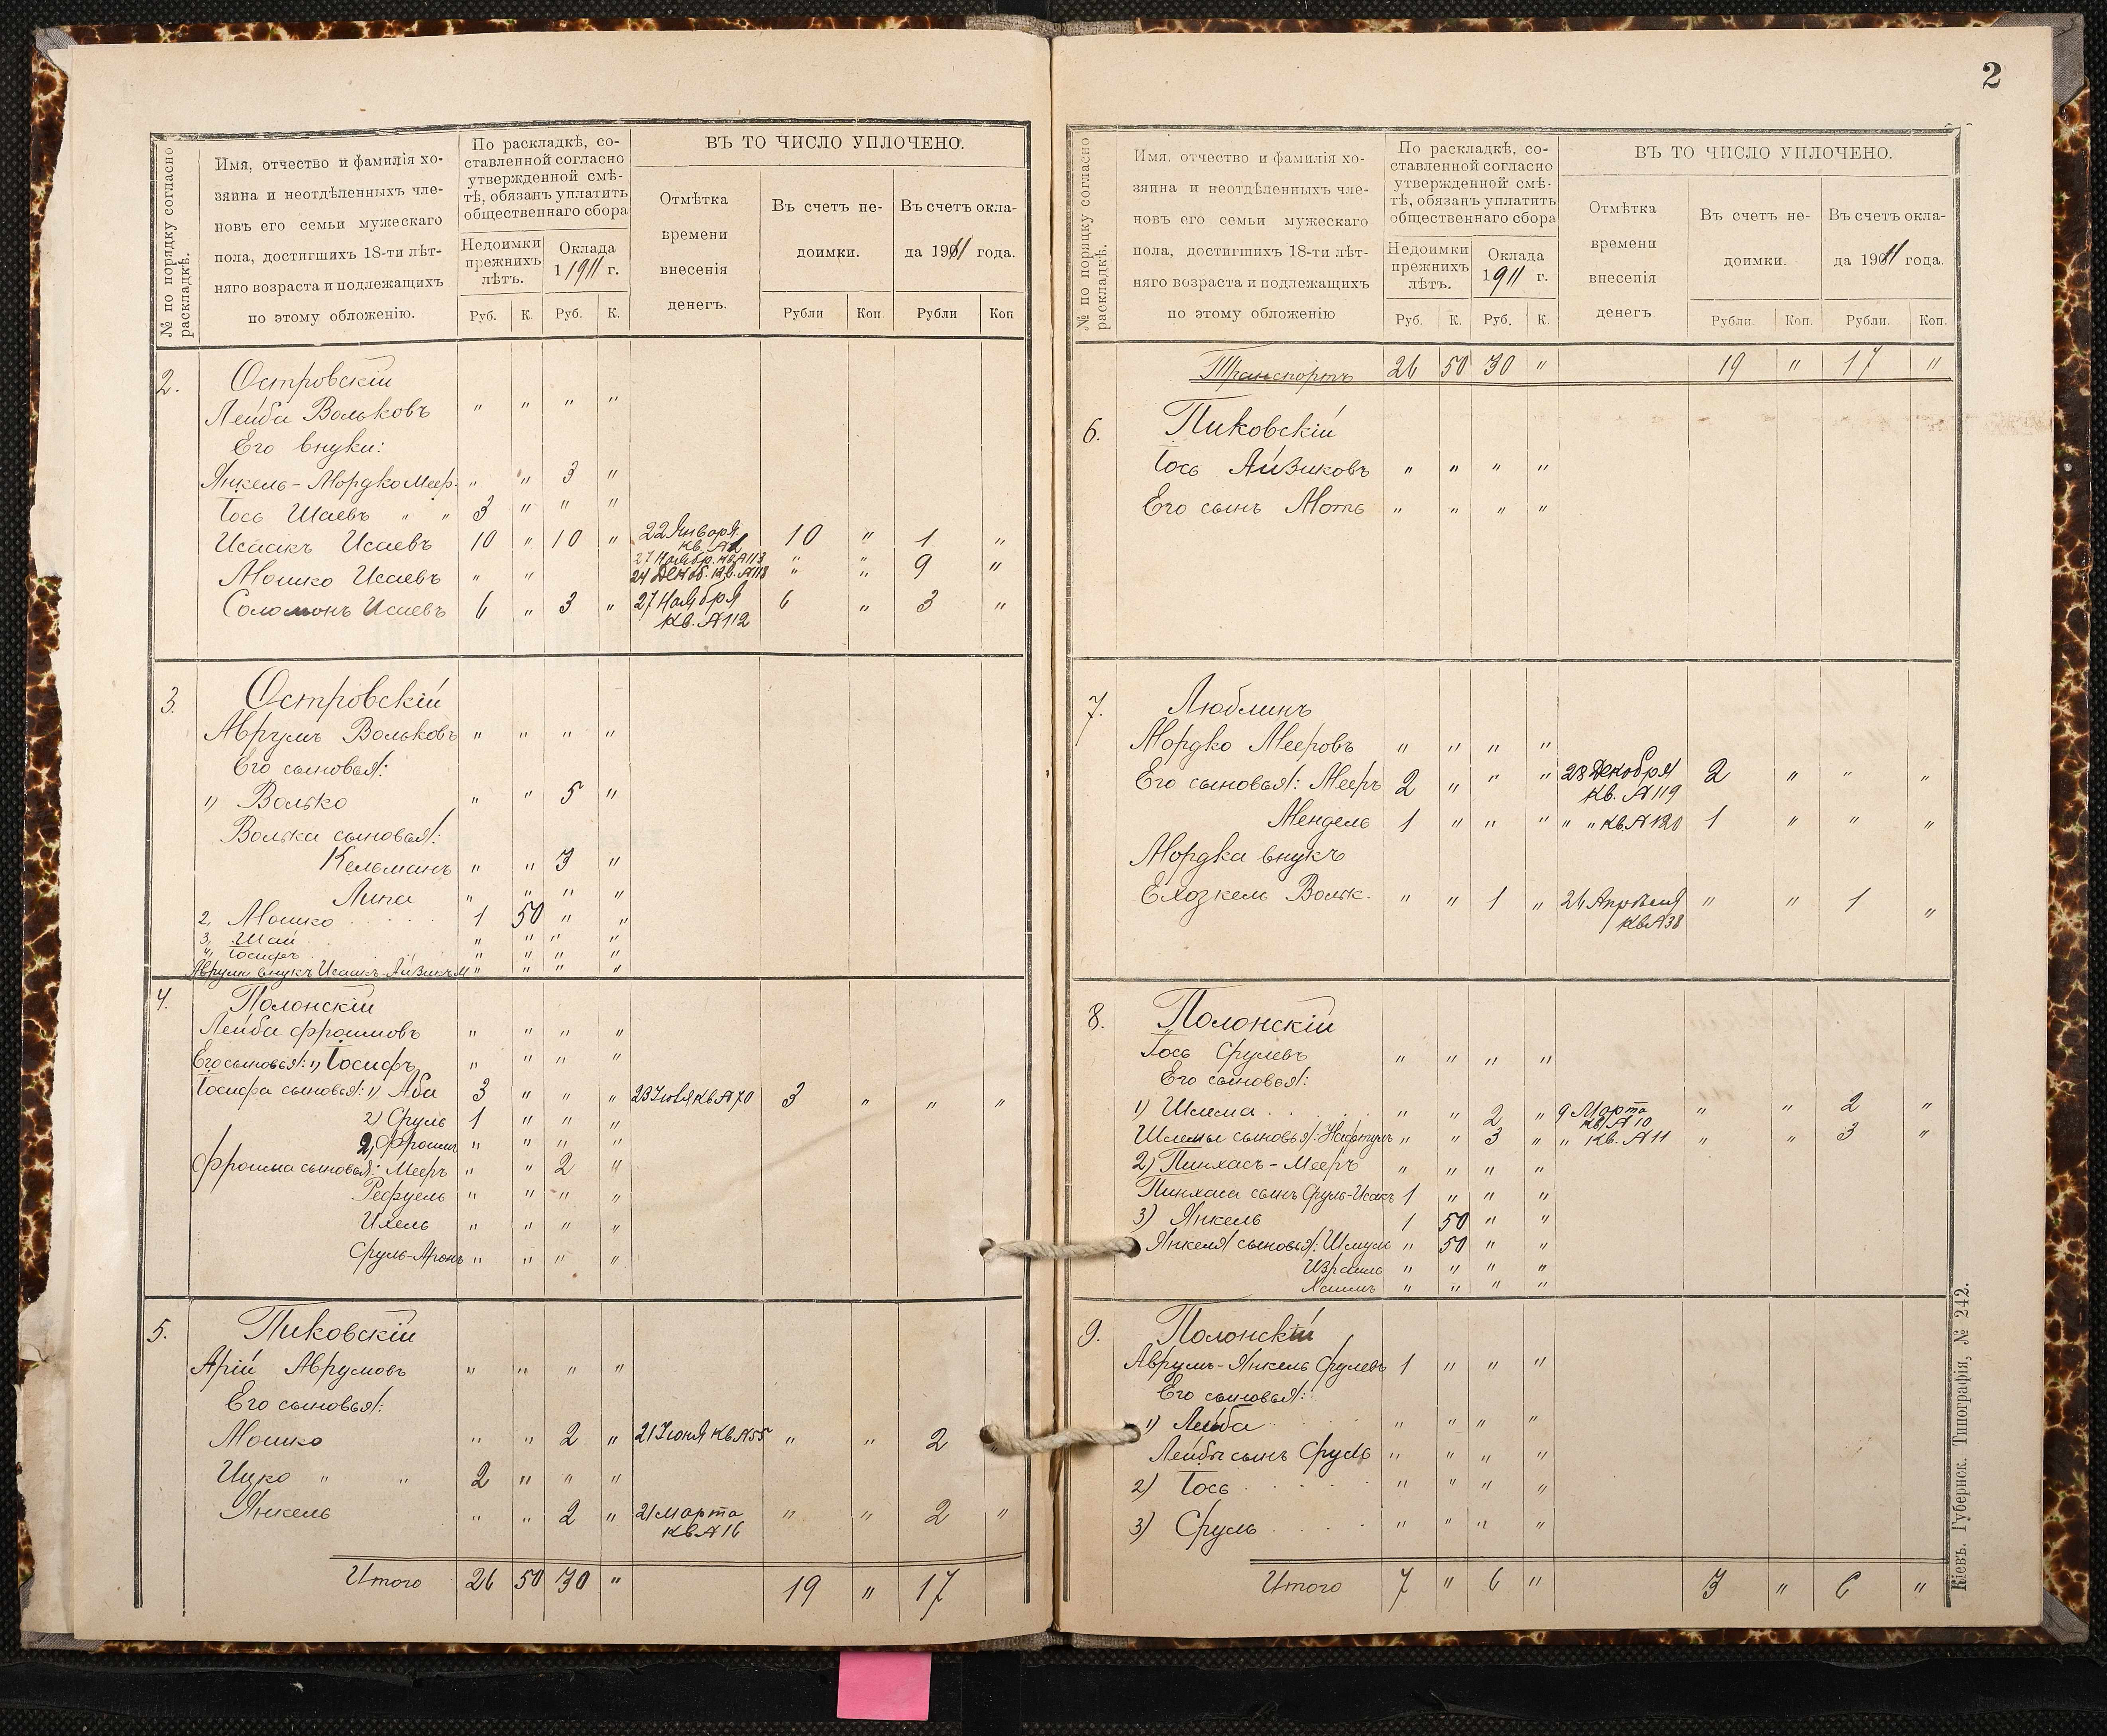 № по порядку согласно раскладкѣ.
Имя, отчество и фамилія хо-
зяина и неотдѣленныхъ чле-
новъ его семьи мужескаго
пола, достигшихъ 18-ти лѣт-
няго возраста и подлежащихъ
по этому обложенію.
По раскладкѣ, со-
ставленной согласно
утвержденной смѣ-
тѣ, обязанъ уплатить
общественнаго сбора
Недоимки прежнихъ лѣтъ.
Оклада 1 1911 г.
Руб. К. Руб. К.
ВЪ ТО ЧИСЛО УПЛОЧЕНО.
Отмѣтка
времени
внесенія
денегъ.
Въ счетъ не-
доимки.
Въ счетъ окла-
да 1911 года.
Рубли Коп Рубли Коп
2. Островскій
Лейба Вольковъ " " " "
Его внуки:
Янкель-Мордко Меер. " " 3 "
Іось Шаевъ " " 3 " " "
Исаакъ Исаевъ 10 " 10 " 22 Января кв. № 2 10 " 1 "
27 Ноябр. кв. № 113 " " 9 "
Мошко Исаевъ " " 24 Декаб. кв. № 118
Соломонъ Исаевъ 6 " 3 " 27 Ноября 6 " 3 "
кв. № 112
3. Островскій
Аврумъ Вольковъ " " " "
Его сыновья:
1) Волько " " 5 "
Волька сыновья:
Кельманъ " " 3 "
Липа " " " "
2, Мошко 1 50 " "
3, Шая " " " "
4, Іосифъ " " " "
Аврума внукъ Исаакъ-Айзикъ М " " " "
4. Полонскій
Лейба Фроимовъ " " " "
Его сыновья: 1) Іосифъ " " " "
Іосифа сыновья: 1) Аба 3 " " " 23 Іюля кв № 70 3 " " "
2) Сруль 1 " " "
2, Фроимъ " " " "
Фроима сыновья: Мееръ " " 2 "
Рефуель " " " "
Ихель " " " "
Сруль-Аронъ " " " "
5. Пиковскій
Арій Аврумовъ " " " "
Его сыновья:
Мошко " " 2 " 21 Іюня кв № 55 " " 2 "
Ицко " " 2 " " "
Янкель " " 2 " 21 Марта " " 2 "
кв № 16
Итого 26 50 30 " 19 " 17
2
№ по порядку согласно раскладкѣ.
Имя, отчество и фамилія хо-
зяина и неотдѣленныхъ чле-
новъ его семьи мужескаго
пола, достигшихъ 18-ти лѣт-
няго возраста и подлежащихъ
по этому обложенію
По раскладкѣ, со-
ставленной согласно
утвержденной смѣ-
тѣ, обязанъ уплатить
общественнаго сбора
Недоимки прежнихъ лѣтъ.
Оклада 1911 г.
Руб. К. Руб. К.
ВЪ ТО ЧИСЛО УПЛОЧЕНО.
Отмѣтка
времени
внесенія
денегъ
Въ счетъ не-
доимки.
Въ счетъ окла-
да 1911 года.
Рубли. Коп. Рубли. Коп.
Транспортъ 26 50 30 " 19 " 17 "
6. Пиковскій
Іось Айзиковъ " " " "
Его сынъ Моть " " " "
7. Люблинъ
Мордко Мееровъ " " " "
Его сыновья: Мееръ 2 " " " 28 Декабря 2 " " "
кв. № 119
Мендель 1 " " " " " кв. № 120 1 " " "
Мордка внукъ
Ехозкель Вольк. " " 1 " 26 Апрѣля " " 1 "
кв № 38
8. Полонскій
Іось Срулевъ " " " "
Его сыновья:
1) Шлема " " 2 " 9 Марта " " 2 "
кв № 10
Шлемы сыновья: Нафтулъ " " 3 " " кв. № 11 " " 3 "
2) Пинхасъ-Мееръ " " " "
Пинхаса сынъ Сруль-Исакъ 1 " " "
3) Янкель 1 50 " "
Янкеля сыновья: Шмуль " 50 " "
Израиль " " " "
Хаимъ " " " "
9. Полонскій
Аврумъ-Янкель Срулевъ 1 " " "
Его сыновья:
1) Лейба " " " "
Лейбы сынъ Сруль " " " "
2) Іось " " " "
3) Сруль " " " "
Итого 7 " 6 " 3 " 6 "
Кіевъ. Губернск. Типографія, № 242.